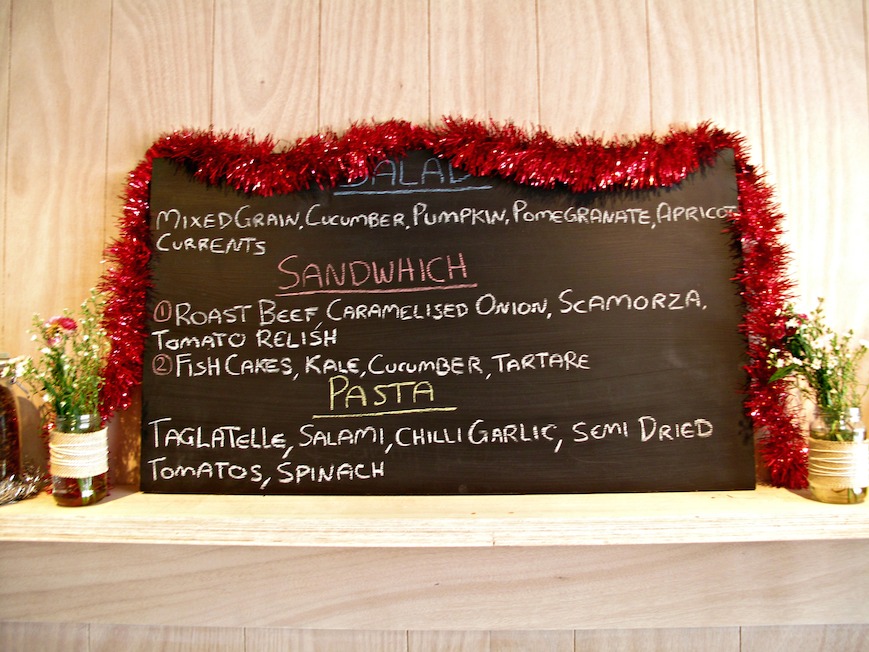 SALAD
MIXED GRAIN, CUCUMBER, PUMPKIN, POMEGRANATE, APRICOT
CURRENTS
SANDWHICH
① ROAST BEEF, CARAMELISED ONION, SCAMORZA,
TOMATO RELISH
② FISH CAKES, KALE, CUCUMBER, TARTARE
PASTA
TAGLATELLE, SALAMI, CHILLI GARLIC, SEMI DRIED
TOMATOS, SPINACH